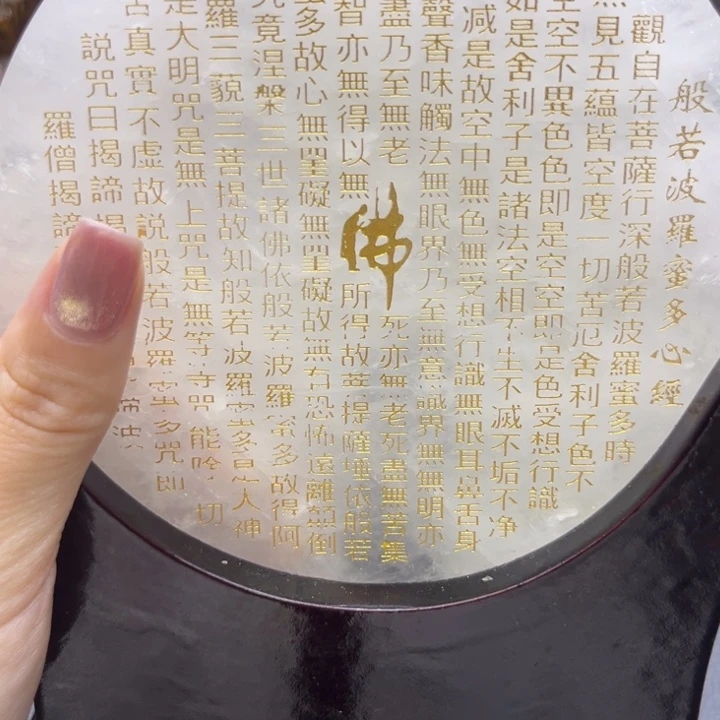 般若波羅蜜多心經
觀自在菩薩行深般若波羅蜜多時
見五蘊皆空度一切苦厄舍利子色不
空空不異色色即是空空即是色受想行識
如是舍利子是諸法空相不生不滅不垢不净
减是故空中無色無受想行識無眼耳鼻舌身
聲香味觸法無眼界乃至無意識界無無明亦
盡乃至無老死亦無老死盡無苦集
佛
智亦無得以無所得故菩提薩埵依般若
多故心無罣礙無罣礙故無有恐怖遠離顛倒
究竟涅槃三世諸佛依般若波羅蜜多故得阿
羅三藐三菩提故知般若波羅蜜多是大神
是大明咒是無上咒是無等等咒能除一切
真實不虛故說般若波羅蜜多咒即
說咒曰揭諦揭
羅僧揭諦